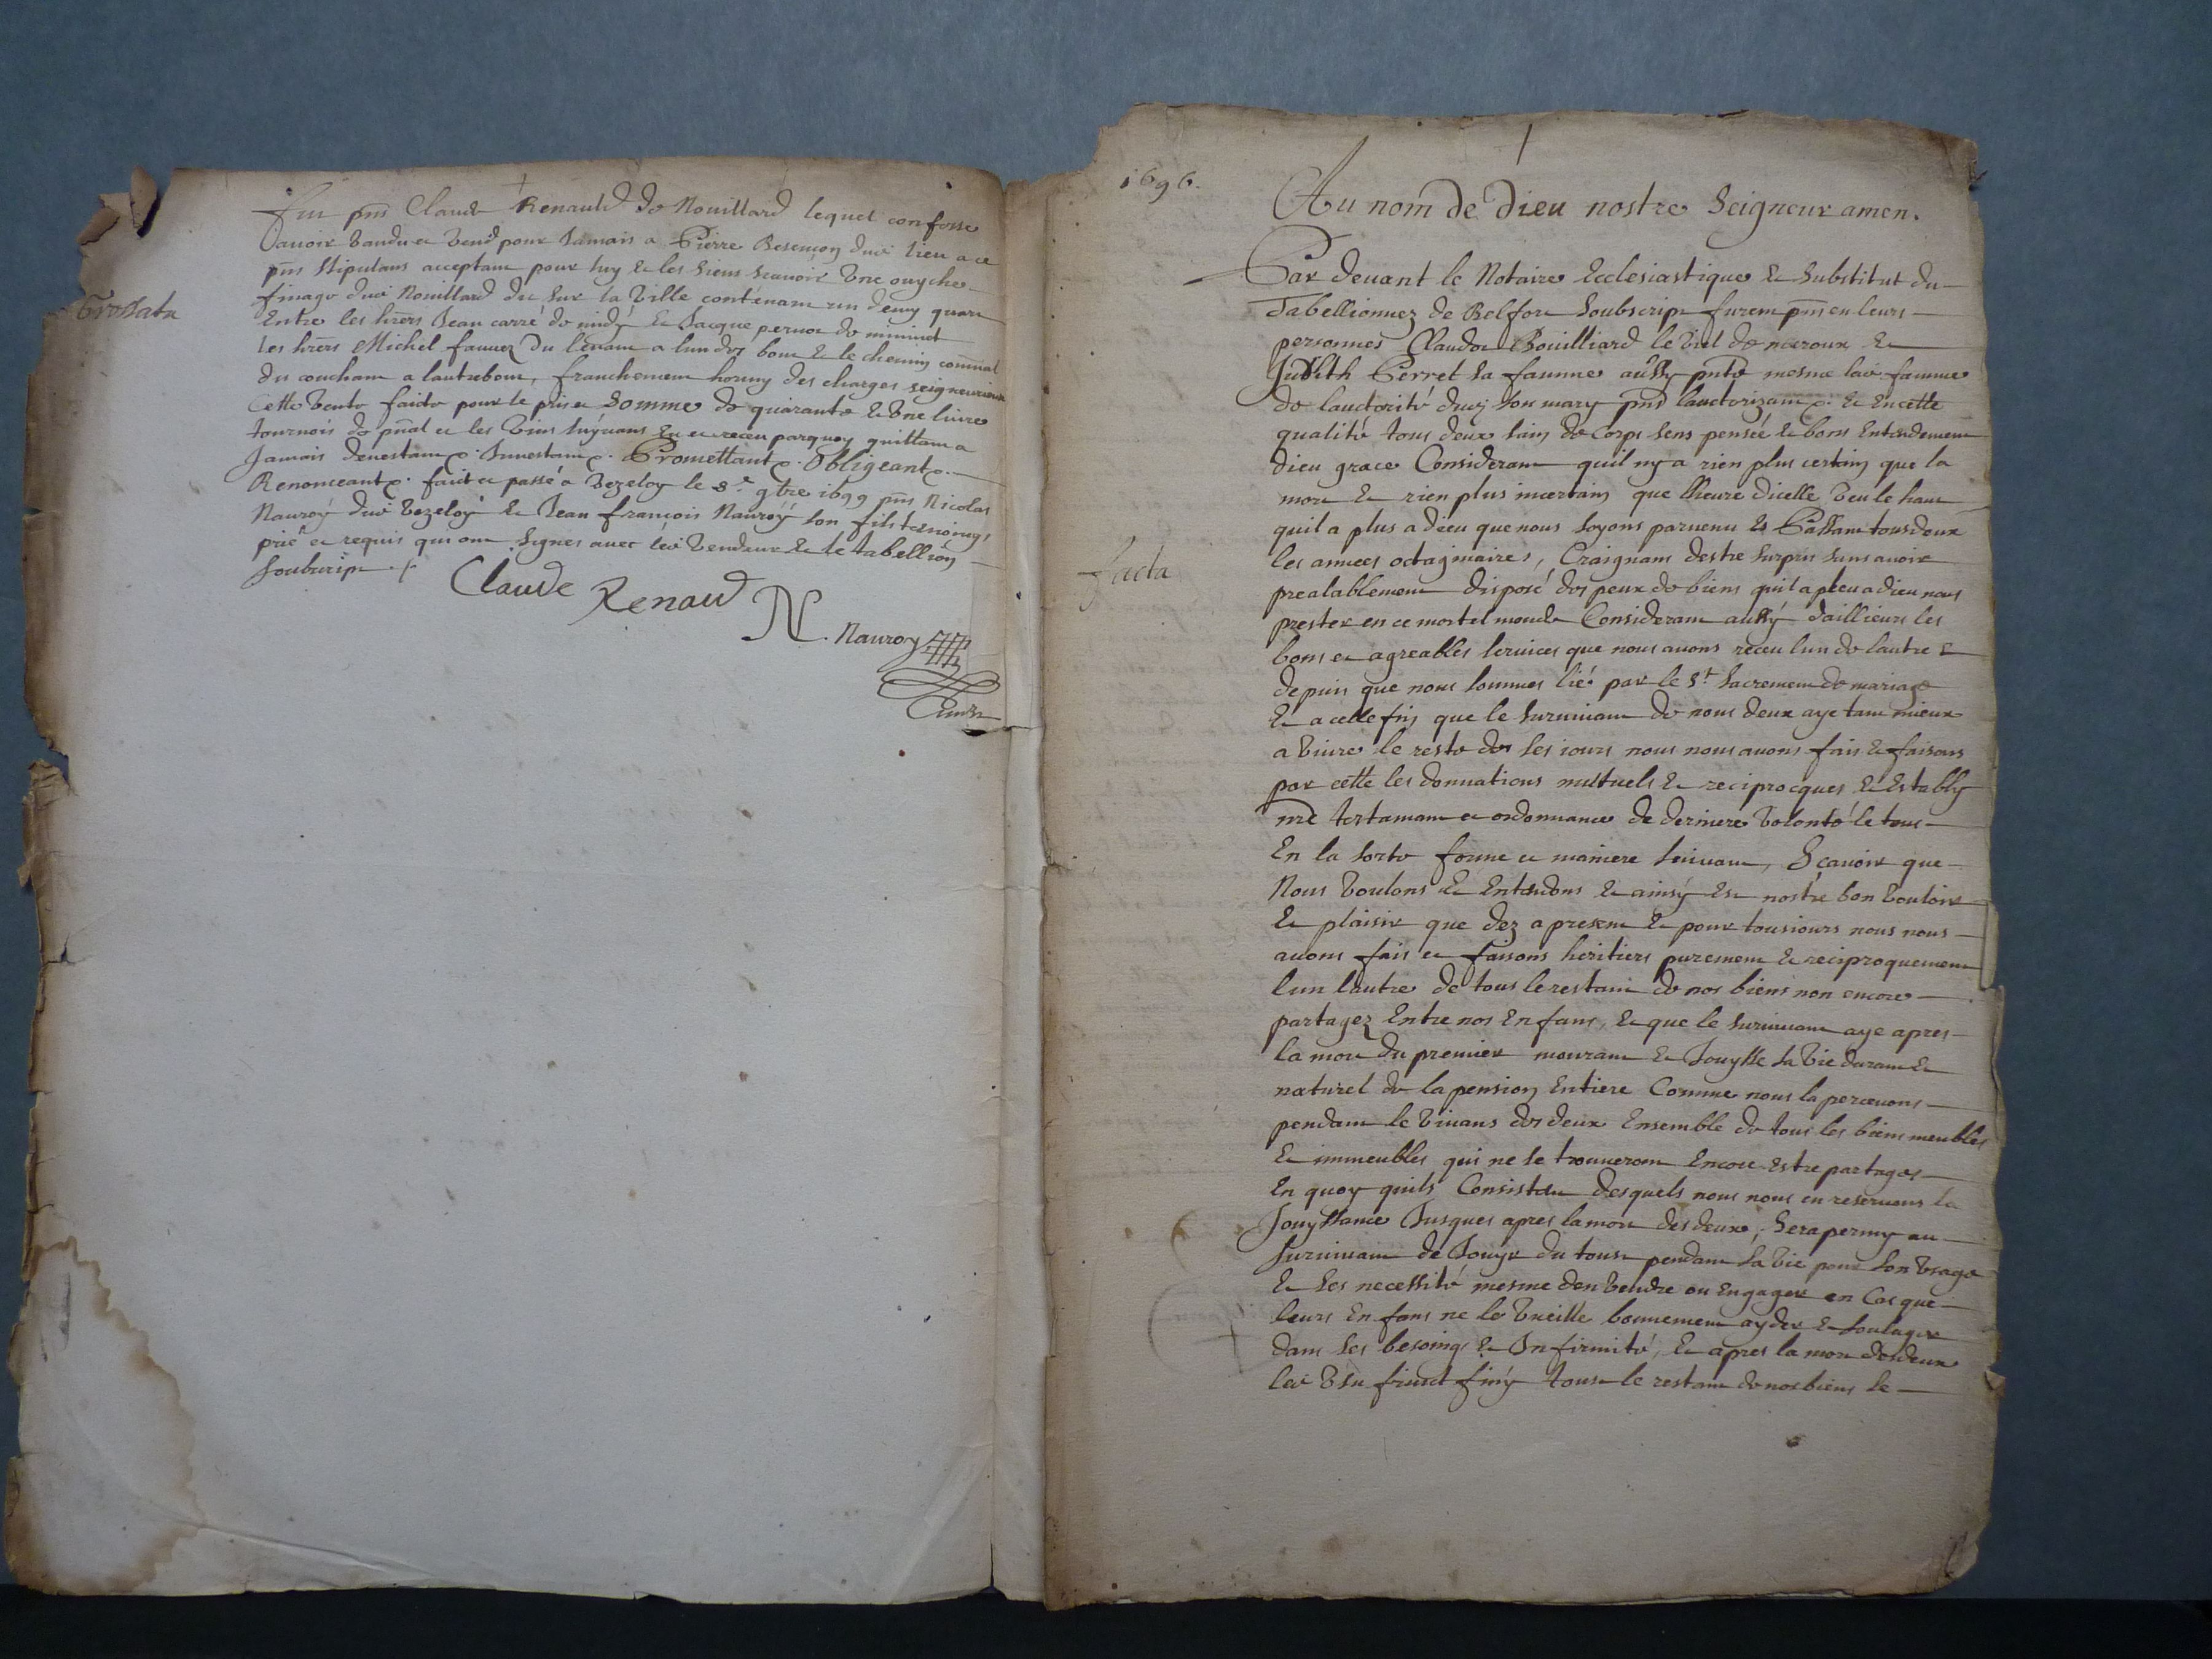 Fut pnt Claude Renauld de Nouillard lequel confesse
avoir vandu et vend pour Jamais a Pierre Besencon dud lieu a ce
pnt stipulant acceptant pour luy et les siens scavoir une ouyche
finage dud Nouillard dit sur la Ville contenant un demy quart
Grossata
Entre les hrers Jean carré de et Jacque pernot de
les hrers Michel fauuez du levant a lun des bout et le chemin comunal
du couchant a lautre bout, franchement horny des charges seigneuriaux
Cette vente faicte pour le pris et somme de quarante et une livre
tournois de pnal et les vins suyvans Eu et receu parquoy quittant a
Jamais devestant &. Investant &. Promettant &. Obligeant &.
Renonceant &. faict et passé a Vezeloy le 8e 9bre 1699 pnts Nicolas
Nauroy dud Vezeloy et Jean francois Nauroy son fils tesmoings
priez et requis qui ont signes avec led vendeur et le tabellion
soubscript ./.
Claude Renaud
N. Nauroy
1696.
Au nom de dieu nostre Seigneur amen.
Par devant le Notaire Ecclesiastique et Substitut du
Tabellionnez de Belfort soubscript furent pnt en leurs
personnes Claudot Bouilliard le viel de meroux et
Judith Perret sa famme aussy pnte mesme lad famme
de lauctorité ducj son mary pnt lauctorizant &. et en cette
qualité tous deux sain de corps sens pensée et bons Entendement
dieu grace Considerant quil ny a rien plus certain que la
mort et rien plus incertain que lheure dicelle veu le haut
quil a plus a dieu que nous soyons parvenu et Passant tous deux
les annees octaginaires, Craignans destre surpris sans avoir
facta
prealablement disposé des peux de biens quil a pleu a dieu nous
prester en ce mortel monde Considerant aussy dailleurs les
bons et agreables services que nous avons receu lun de lautre
depuis que nous sommes lié par le St sacrement de mariage
Et a celle fin que le survivant de nous deux aye tant mieux
a vivre le reste des ses iours nous nous avons fais et faisons
par cette les donnations mutuels et reciprocques et Estably
nre testamant et ordonnance de derniere volonté le tous
En la sorte forme et maniere suivant, Scavoir que
Nous voulons et Entendons et ainsy Est nostre bon vouloir
et plaisir que dez a present et pour tousiours nous nous
avons fais et faisons heritiers purement et reciproquement
lun lautre de tous le restant de nos biens non encore
partagez Entre nos Enfans, et que le survivant aye apres
la mort du premier mourant et Jouysse sa vie durant et
naturel de la pension Entiere Comme nous la percevons
pendant le vivans des deux Ensemble de tous les biens meubles
et immeubles qui ne se trouveront Encore Estre partages
En quoy quils Consistent desquels nous nous en reservons la
Jouyssance Jusques apres la mort des deux, Sera permy au
survivant de Jouyr du tous pendant sa vie pour son usage
et ses necessité mesme den vendre ou Engager en Cas que
leurs Enfans ne le vueille bonnement ayder et soulager
dans ses besoings et Infirmité, et apres la mort des deux
led usufruict finy tous le restant de nos biens se